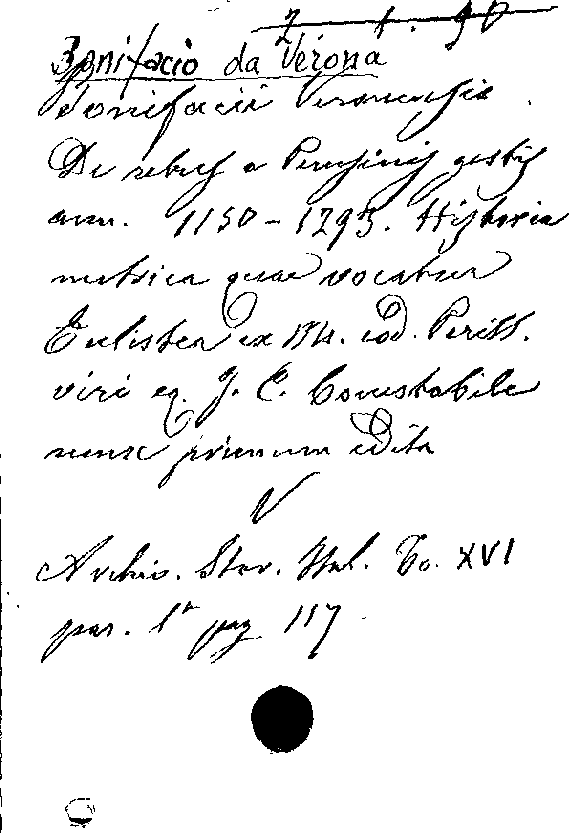 2 . 1 . 90
Bonifacio da Verona
Bonifacii Veronensis
De rebus a Perusinis gestis
ann. 1150 - 1293. Historia
metrica quae vocatur
Eulistea ex Ms. cod. Perill.
viri eq. J. C. Conestabile
nunc primum edita
V
Archiv. Stor. Ital. To. XVI
par. 1a pag 117